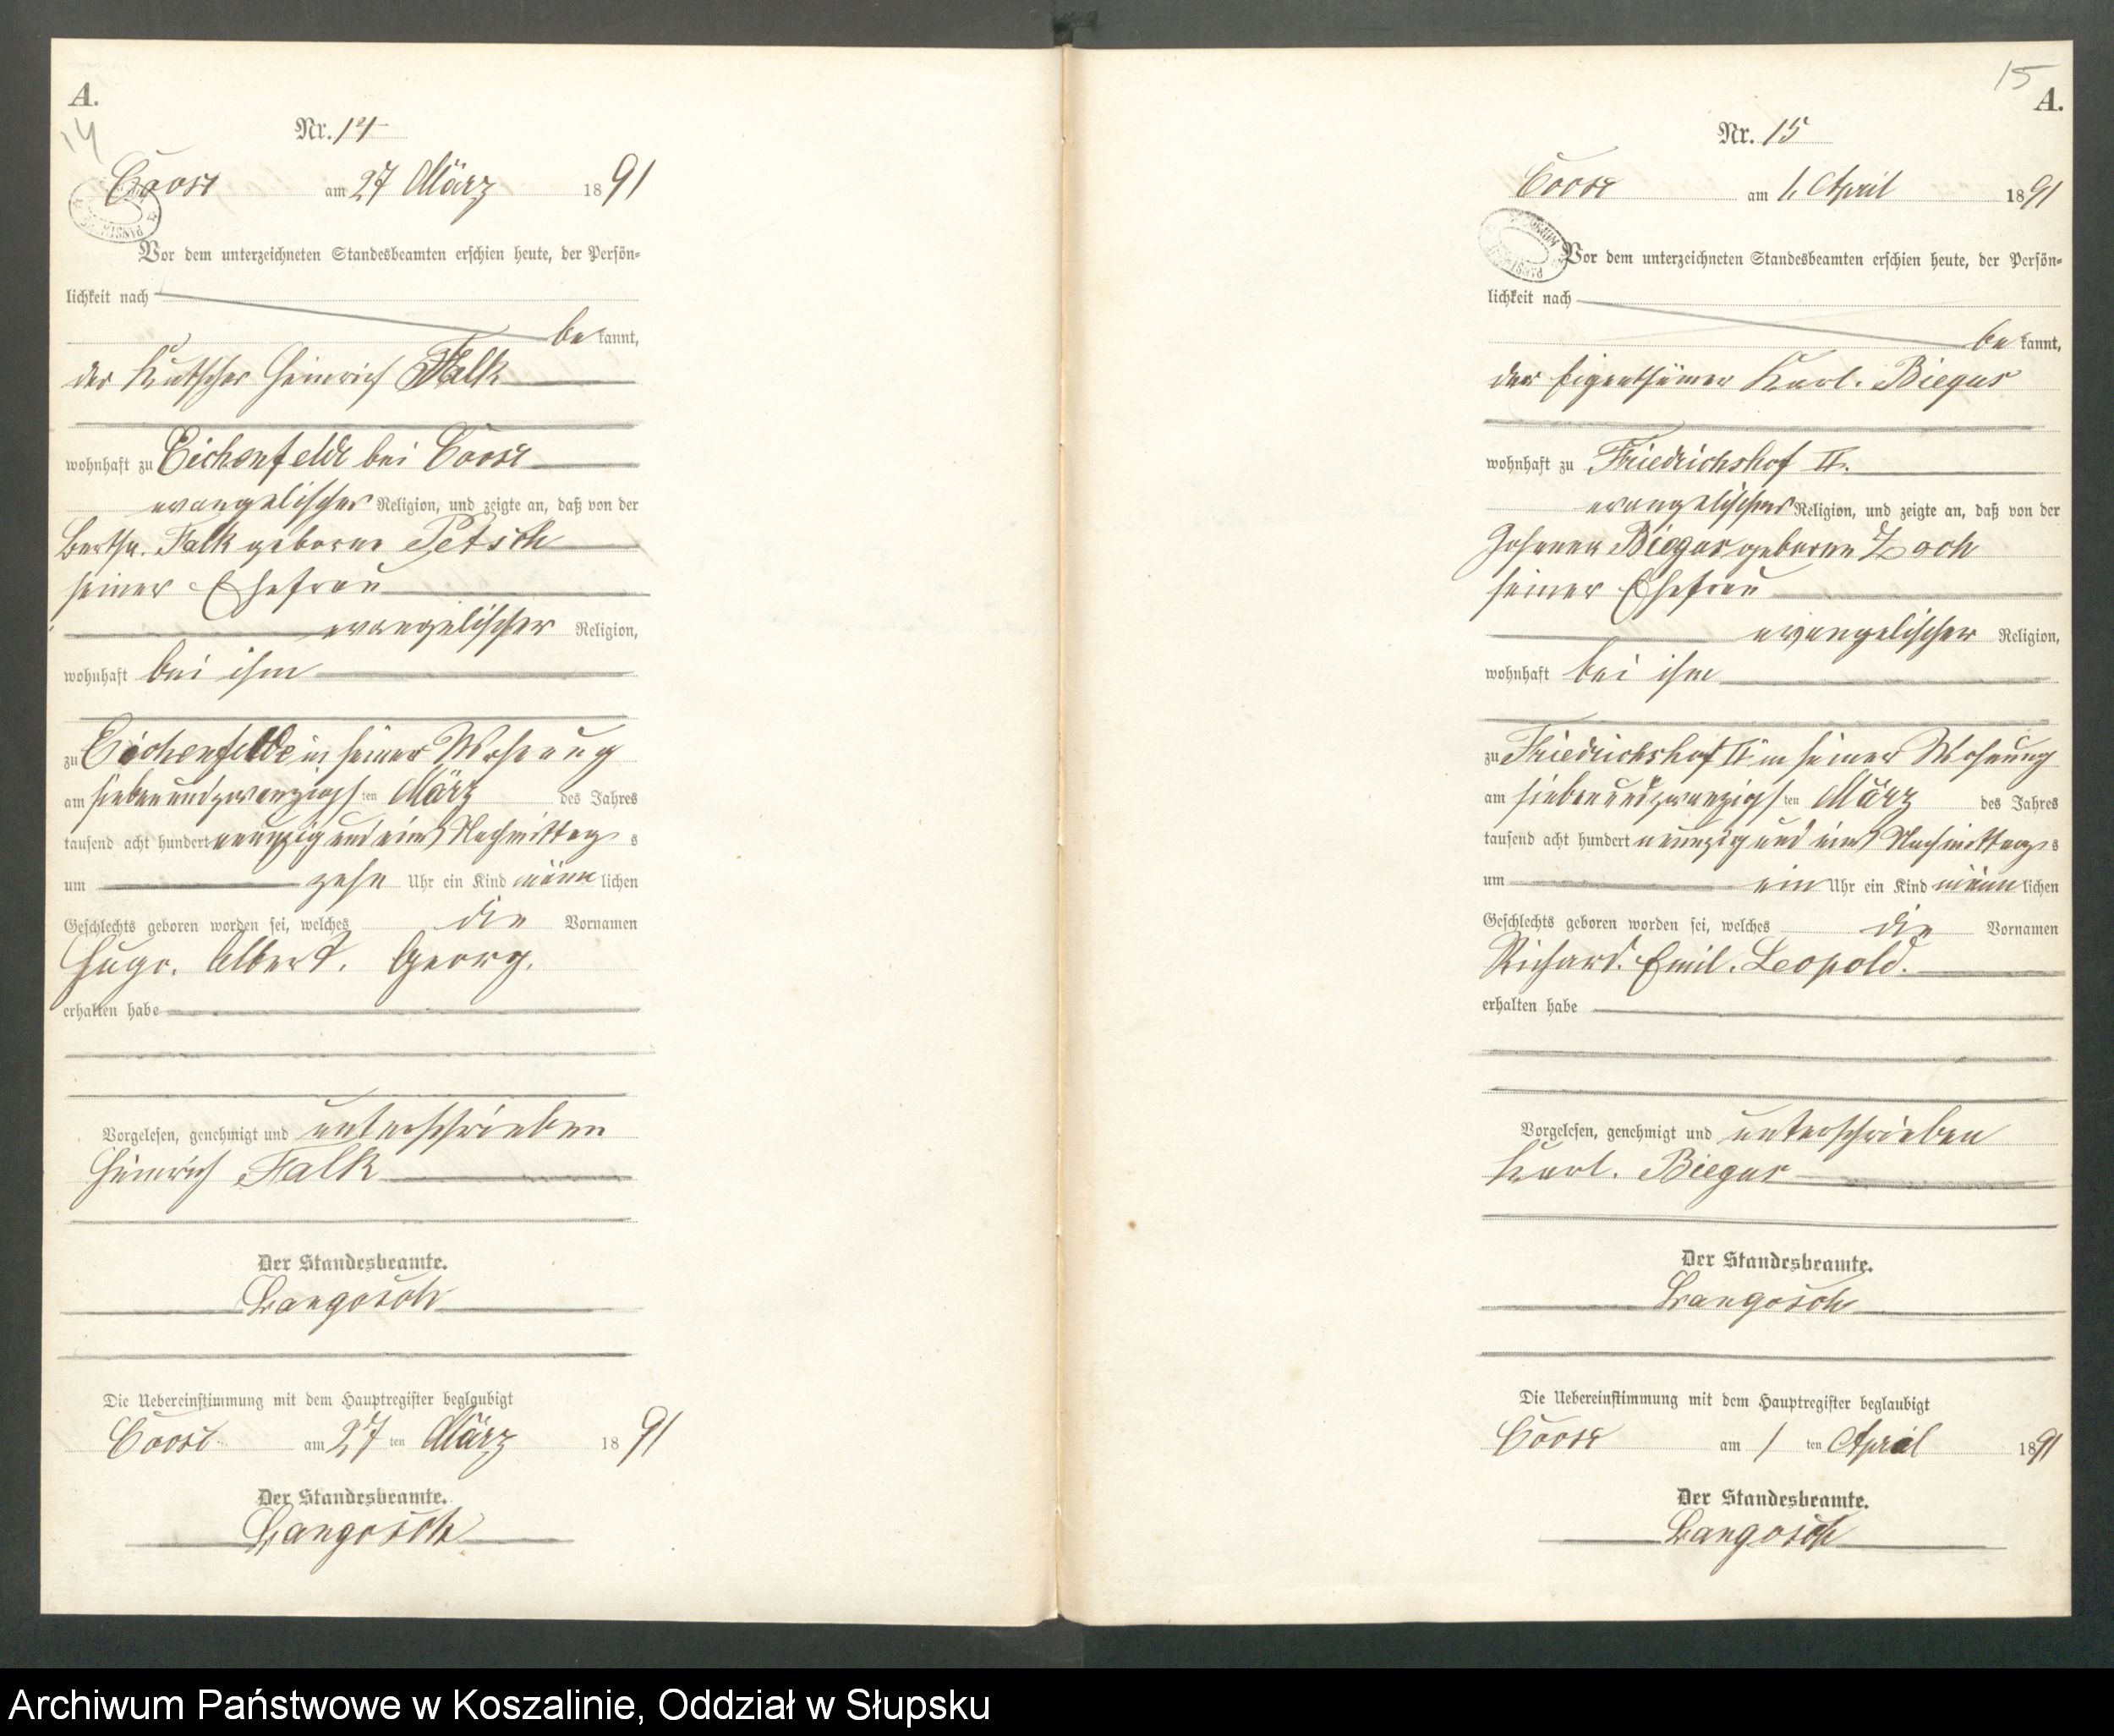 A.
14
Nr. 14
Coose am 27 März 1891
Vor dem unterzeichneten Standesbeamten erschien heute, der Persön-
lichkeit nach
be kannt,
der Kutscher Heinrich Falk
wohnhaft zu Eichenfelde bei Coose
evangelischer Religion, und zeigte an, daß von der
Bertha Falk geborne Petsch
seiner Ehefrau
evangelischer Religion,
wohnhaft bei ihm
zu Eichenfelde in seiner Wohnung
am siebenundzwanzigsten März des Jahres
tausend acht hundert neunzig und eins Nachmittags
um zehn Uhr ein Kind männlichen
Geschlechts geboren worden sei, welches die Vornamen
Hugo. Albert. Georg.
erhalten habe
Vorgelesen, genehmigt und unterschrieben
Heinrich Falk
Der Standesbeamte.
Langosch
Die Uebereinstimmung mit dem Hauptregister beglaubigt
Coose am 27 ten März 1891
Der Standesbeamte.
Langosch
15
A.
Nr. 15
Coose am 1. April 1891
Vor dem unterzeichneten Standesbeamten erschien heute, der Persön-
lichkeit nach
be kannt,
der Eigenthümer Karl. Biegus
wohnhaft zu Friedrichshof II.
evangelischer Religion, und zeigte an, daß von der
Johanna Biegus geborne Zoch
seiner Ehefrau
evangelischer Religion,
wohnhaft bei ihm
zu Friedrichshof II in seiner Wohnung
am siebenundzwanzigsten März des Jahres
tausend acht hundert neunzig und eins Nachmittags
um ein Uhr ein Kind männlichen
Geschlechts geboren worden sei, welches die Vornamen
Richard. Emil. Leopold.
erhalten habe
Vorgelesen, genehmigt und unterschrieben
Karl. Biegus
Der Standesbeamte.
Langosch
Die Uebereinstimmung mit dem Hauptregister beglaubigt
Coose am 1 ten April 1891
Der Standesbeamte.
Langosch
Archiwum Państwowe w Koszalinie, Oddział w Słupsku